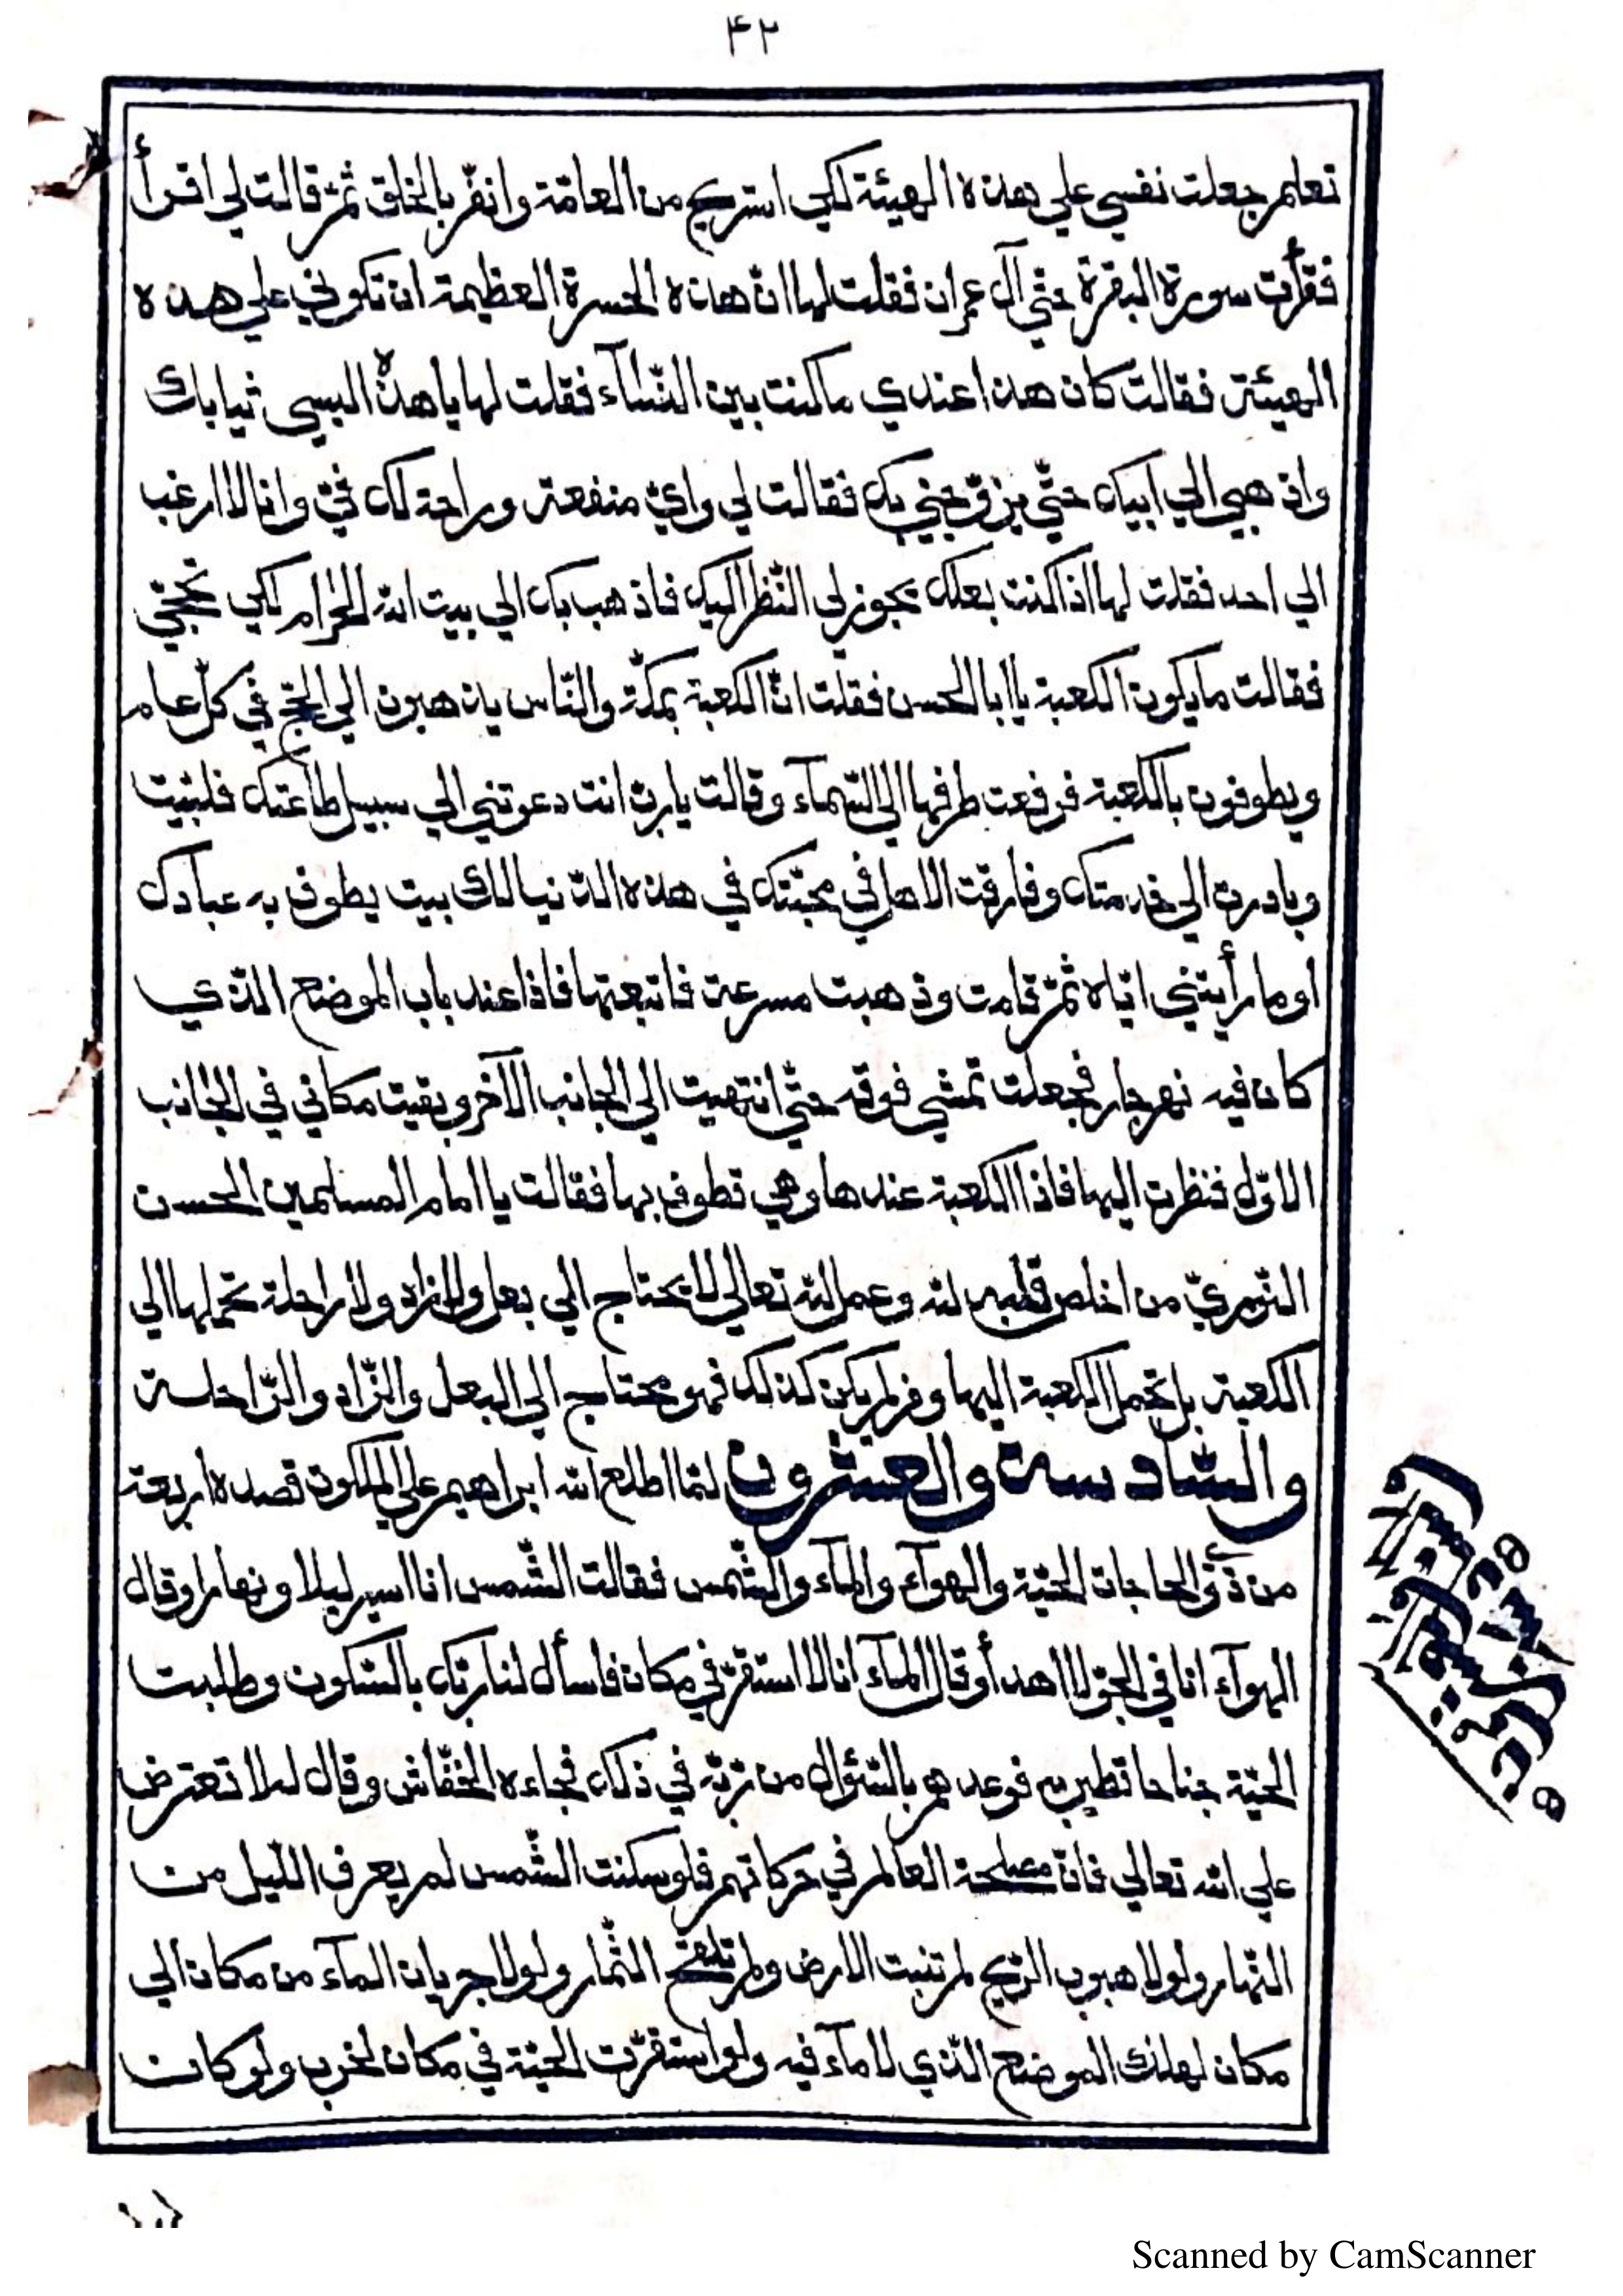 ۴۲
تعلم جعلت نفسي علي هذه الهيئة لكي استريح من العامّة وانفر بالخلق ثمّ قالت لي اقرأ
فقرأت سورة البقرة حتّي آل عمران فقلت لها انّ هذه الحسرة العظيمة ان تكوني علي هذه
الهيئة فقالت كان هذا عندي ما كنت بين النّسآء فقلت لها يا هذه البسي ثيابك
واذهبي الي ابيك حتّي يزوّجني بك فقالت لي وايّ منفعة وراحة لك فيّ وانا لا ارغب
الي احد فقلت لها اذا كنت بعلك يجوز لي النّظر اليك فاذهب بك الي بيت الله الحرام لكي تحجّي
فقالت ما يكون الكعبة يا ابا الحسن فقلت انّ الكعبة بمكّة والنّاس يذهبون الي الحجّ في كلّ عام
ويطوفون بالكعبة فرفعت طرفها الي السّمآء وقالت يا ربّ انت دعوتني الي سبيل طاعتك فلبّيت
وبادرت الي خدمتك وفارقت الاهل في محبّتك في هذه الدّنيا لك بيت يطوف به عبادك
او ما رأيتني ايّاه ثمّ قامت وذهبت مسرعة فاتبعتها فاذا عند باب الموضع الذي
كان فيه نهر جار فجعلت تمشي فوقه حتّي انتهيت الي الجانب الآخر وبقيت مكاني في الجانب
الاوّل فنظرت اليها فاذا الكعبة عندها وهي تطوف بها فقالت يا امام المسلمين الحسن
من اخلص قلبه لله وعمل لله تعالي لا يحتاج الي بعل ولا زاد ولا راحلة تحملها الي
الكعبة بل تحمل الكعبة اليها ومن لم يكن كذلك فهو محتاج الي البعل والزّاد والرّاحلة
والسّادسة والعشرون لمّا اطلع الله ابراهيم علي الملكوت قصده اربعة
من ذوي الحاجات الحيّة والهوآء والمآء والشّمس فقالت الشّمس انا اسير ليلا ونهارا وقال
الهوآء انا في الجوّ لا اهدأ وقال المآء انا لا استقرّ في مكان فاسأل لنا ربّك بالسّكون وطلبت
الحيّة جناحا تطير به فوعدهم بالسّؤال من ربّه في ذلك فجاءه الخفّاش وقال له لا تعترض
علي الله تعالي فانّ مصلحة العالم في حركاتهم فلو سكنت الشّمس لم يعرف اللّيل من
النّهار ولولا هبوب الرّيح لم تنبت الارض ولم تلقح الثّمار ولولا جريان المآء من مكان الي
مكان لهلك الموضع الذي لا مآء فيه ولو استقرّت الحيّة في مكان لخرب ولو كانت
Scanned by CamScanner